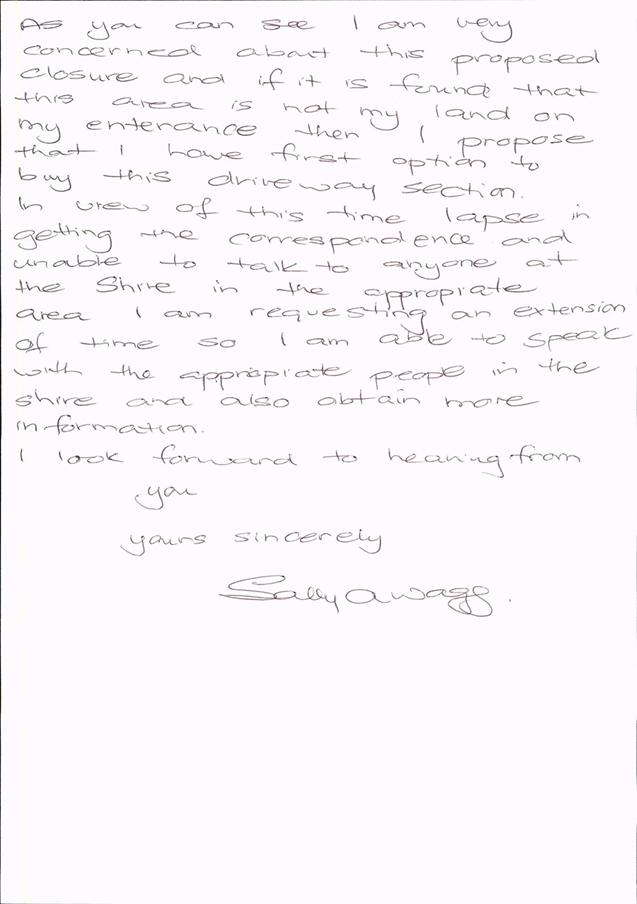 As you can see I am very
concerned about this proposed
closure and if it is found that
this area is not my land on
my enterance then I propose
that I have first option to
buy this driveway section.
In view of this time lapse in
getting the correspondence and
unable to talk to anyone at
the Shire in the appropiate
area I am requesting an extension
of time so I am able to speak
with the appropiate people in the
shire and also obtain more
information.
I look forward to hearing from
you
yours sincerely
Sally A Wagg.